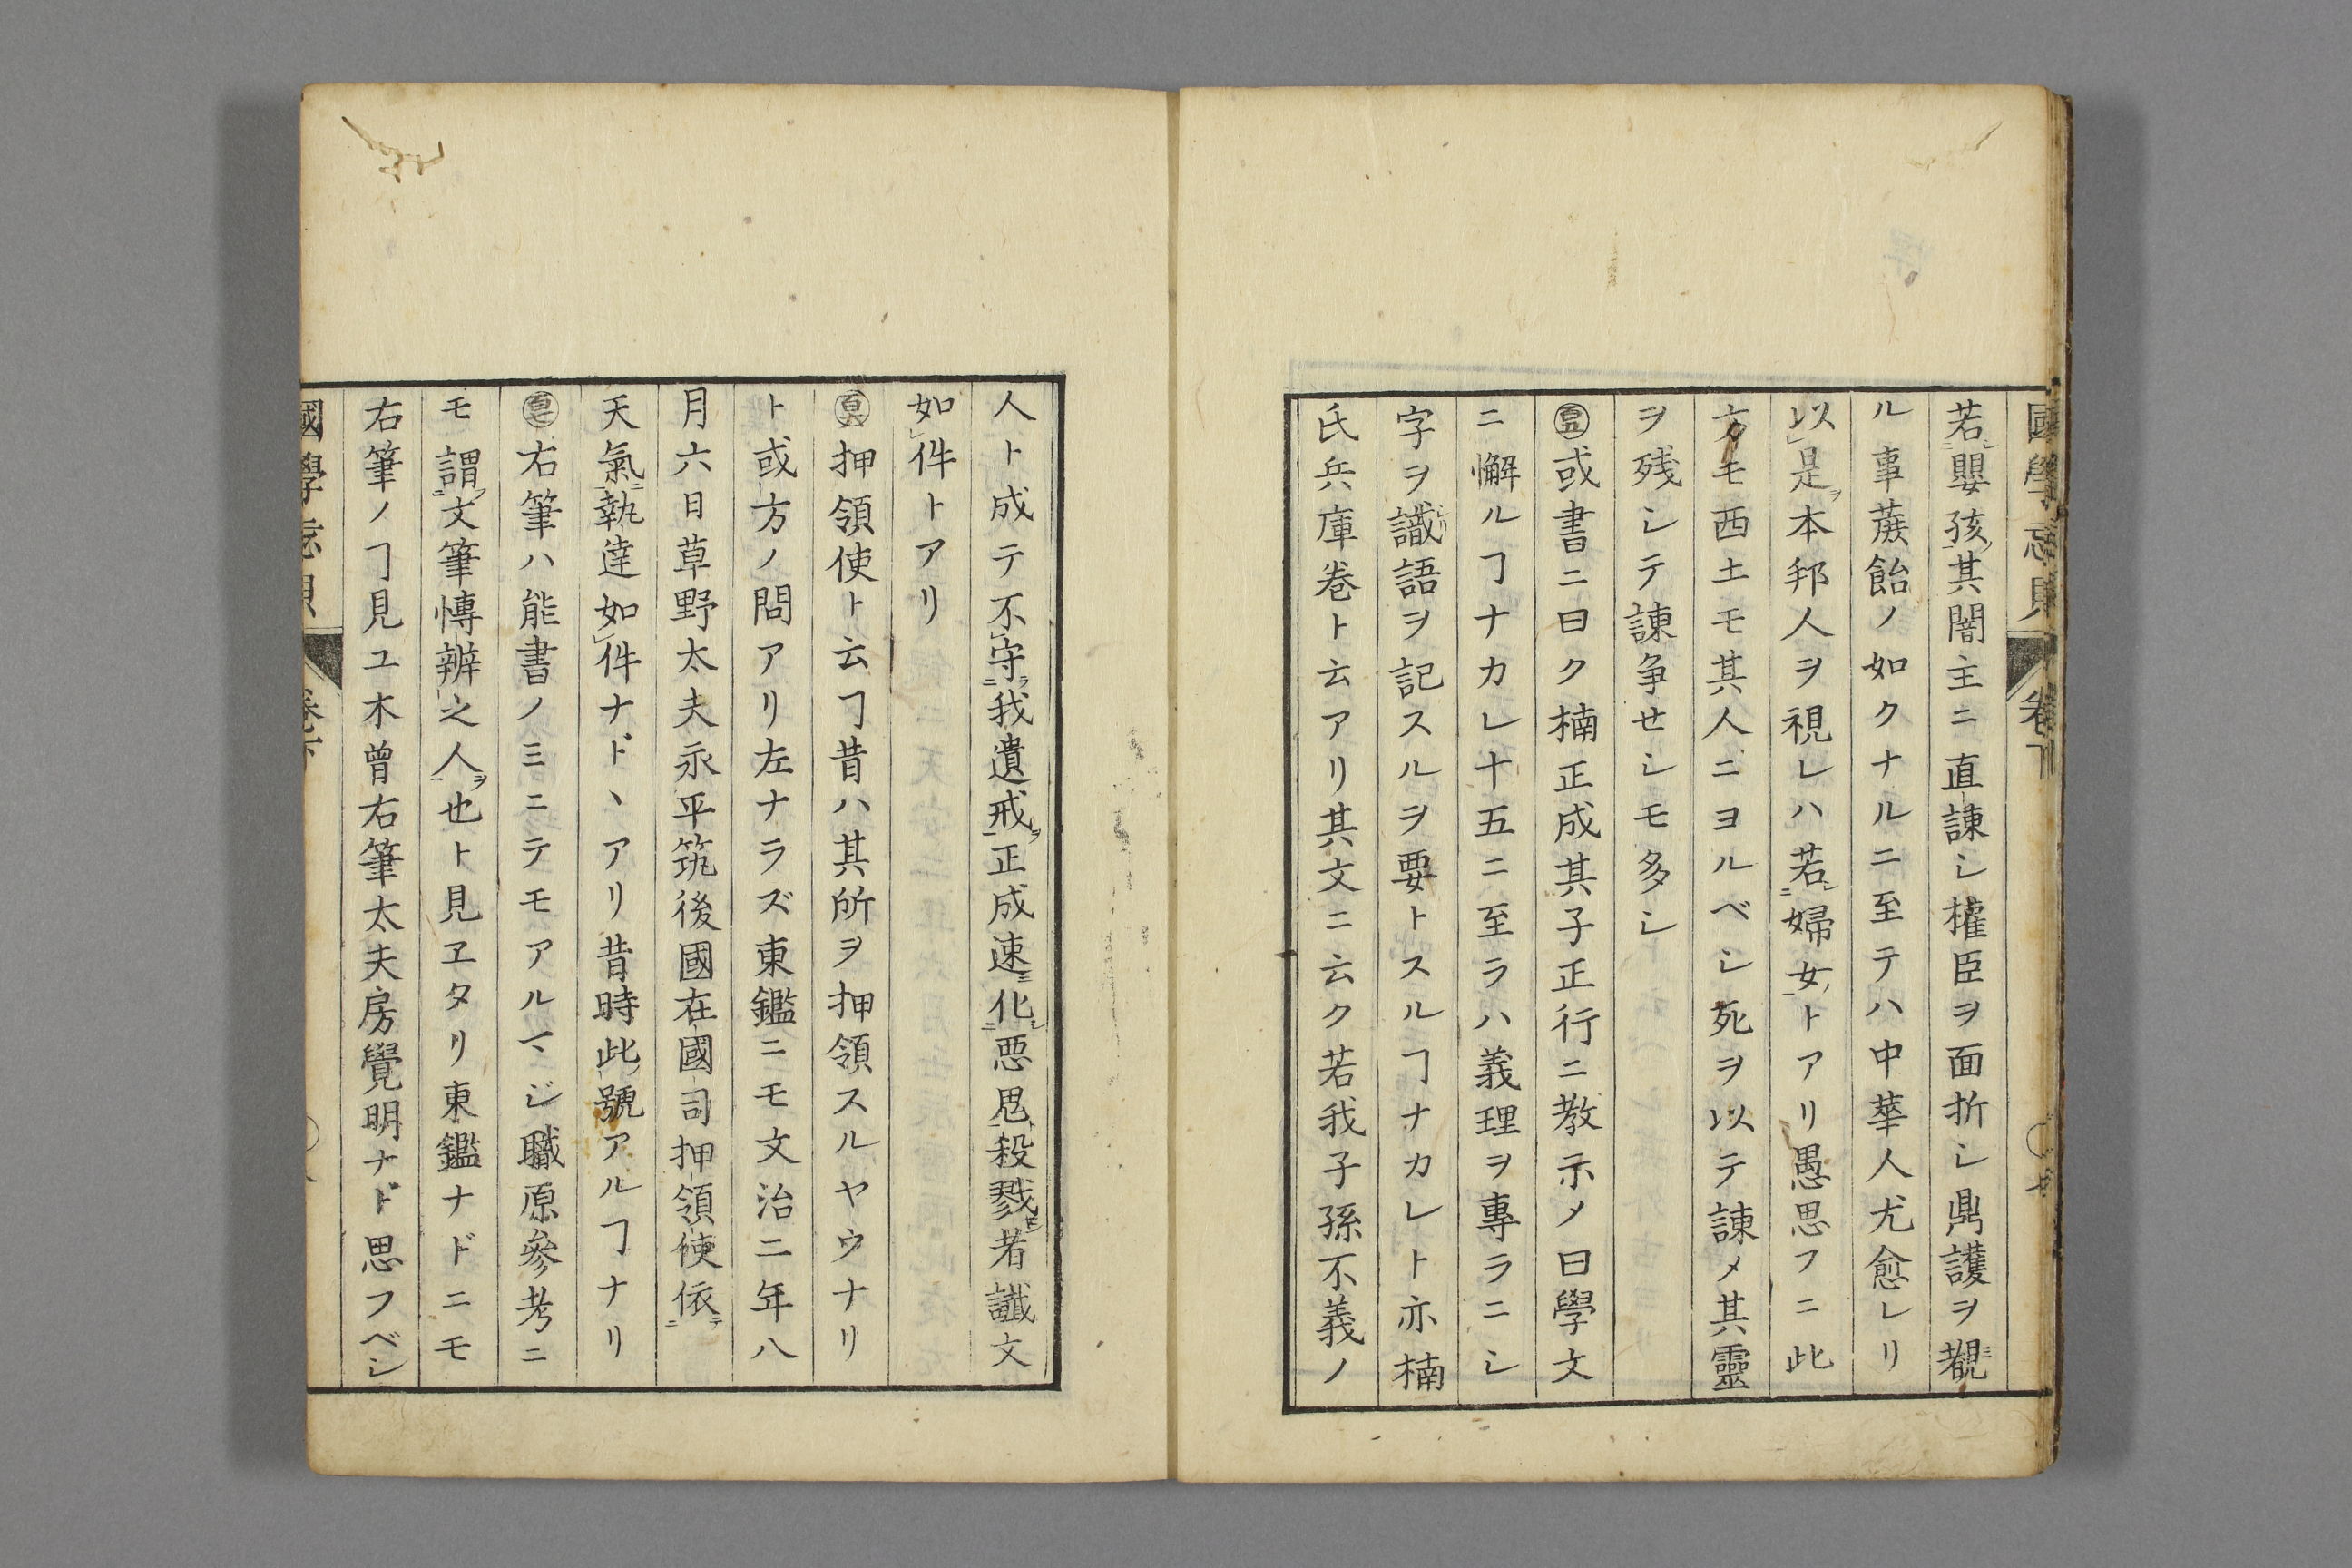 若嬰孩其闇主ニ直諌シ權臣ヲ面折シ鼎護ヲ覩
ル事蔗飴ノ如クナルニ至テハ中華人尤愈レリ
以是本邦人ヲ視レハ若婦女トアリ愚思フニ此
方モ西土モ其人ニヨルベシ死ヲ以テ諌メ其靈
ヲ残シテ諌争セシモ多シ
或書ニ曰ク楠正成其子正行ニ教示メ曰學文
ニ懈ルヿナカレ十五ニ至ラハ義理ヲ專ラニシ
字ヲ識語ヲ記スルヲ要トスルヿナカレト亦楠
氏兵庫巻ト云アリ其文ニ云ク若我子孫不義ノ
人ト成テ不守我遺戒正成速化悪鬼殺戮者讖文
如件トアリ
押領使ト云ヿ昔ハ其所ヲ押領スルヤウナリ
ト或方ノ問アリ左ナラズ東鑑ニモ文治二年八
月六日草野太夫永平筑後國在國司押領使依
天氣執達如件ナド、アリ昔時此號アルヿナリ
右筆ハ能書ノミニテモアルマジ職原參考ニ
モ謂文筆慱辨之人也ト見ヱタリ東鑑ナドニモ
右筆ノヿ見ユ木曾右筆太夫房覺明ナド思フベシ